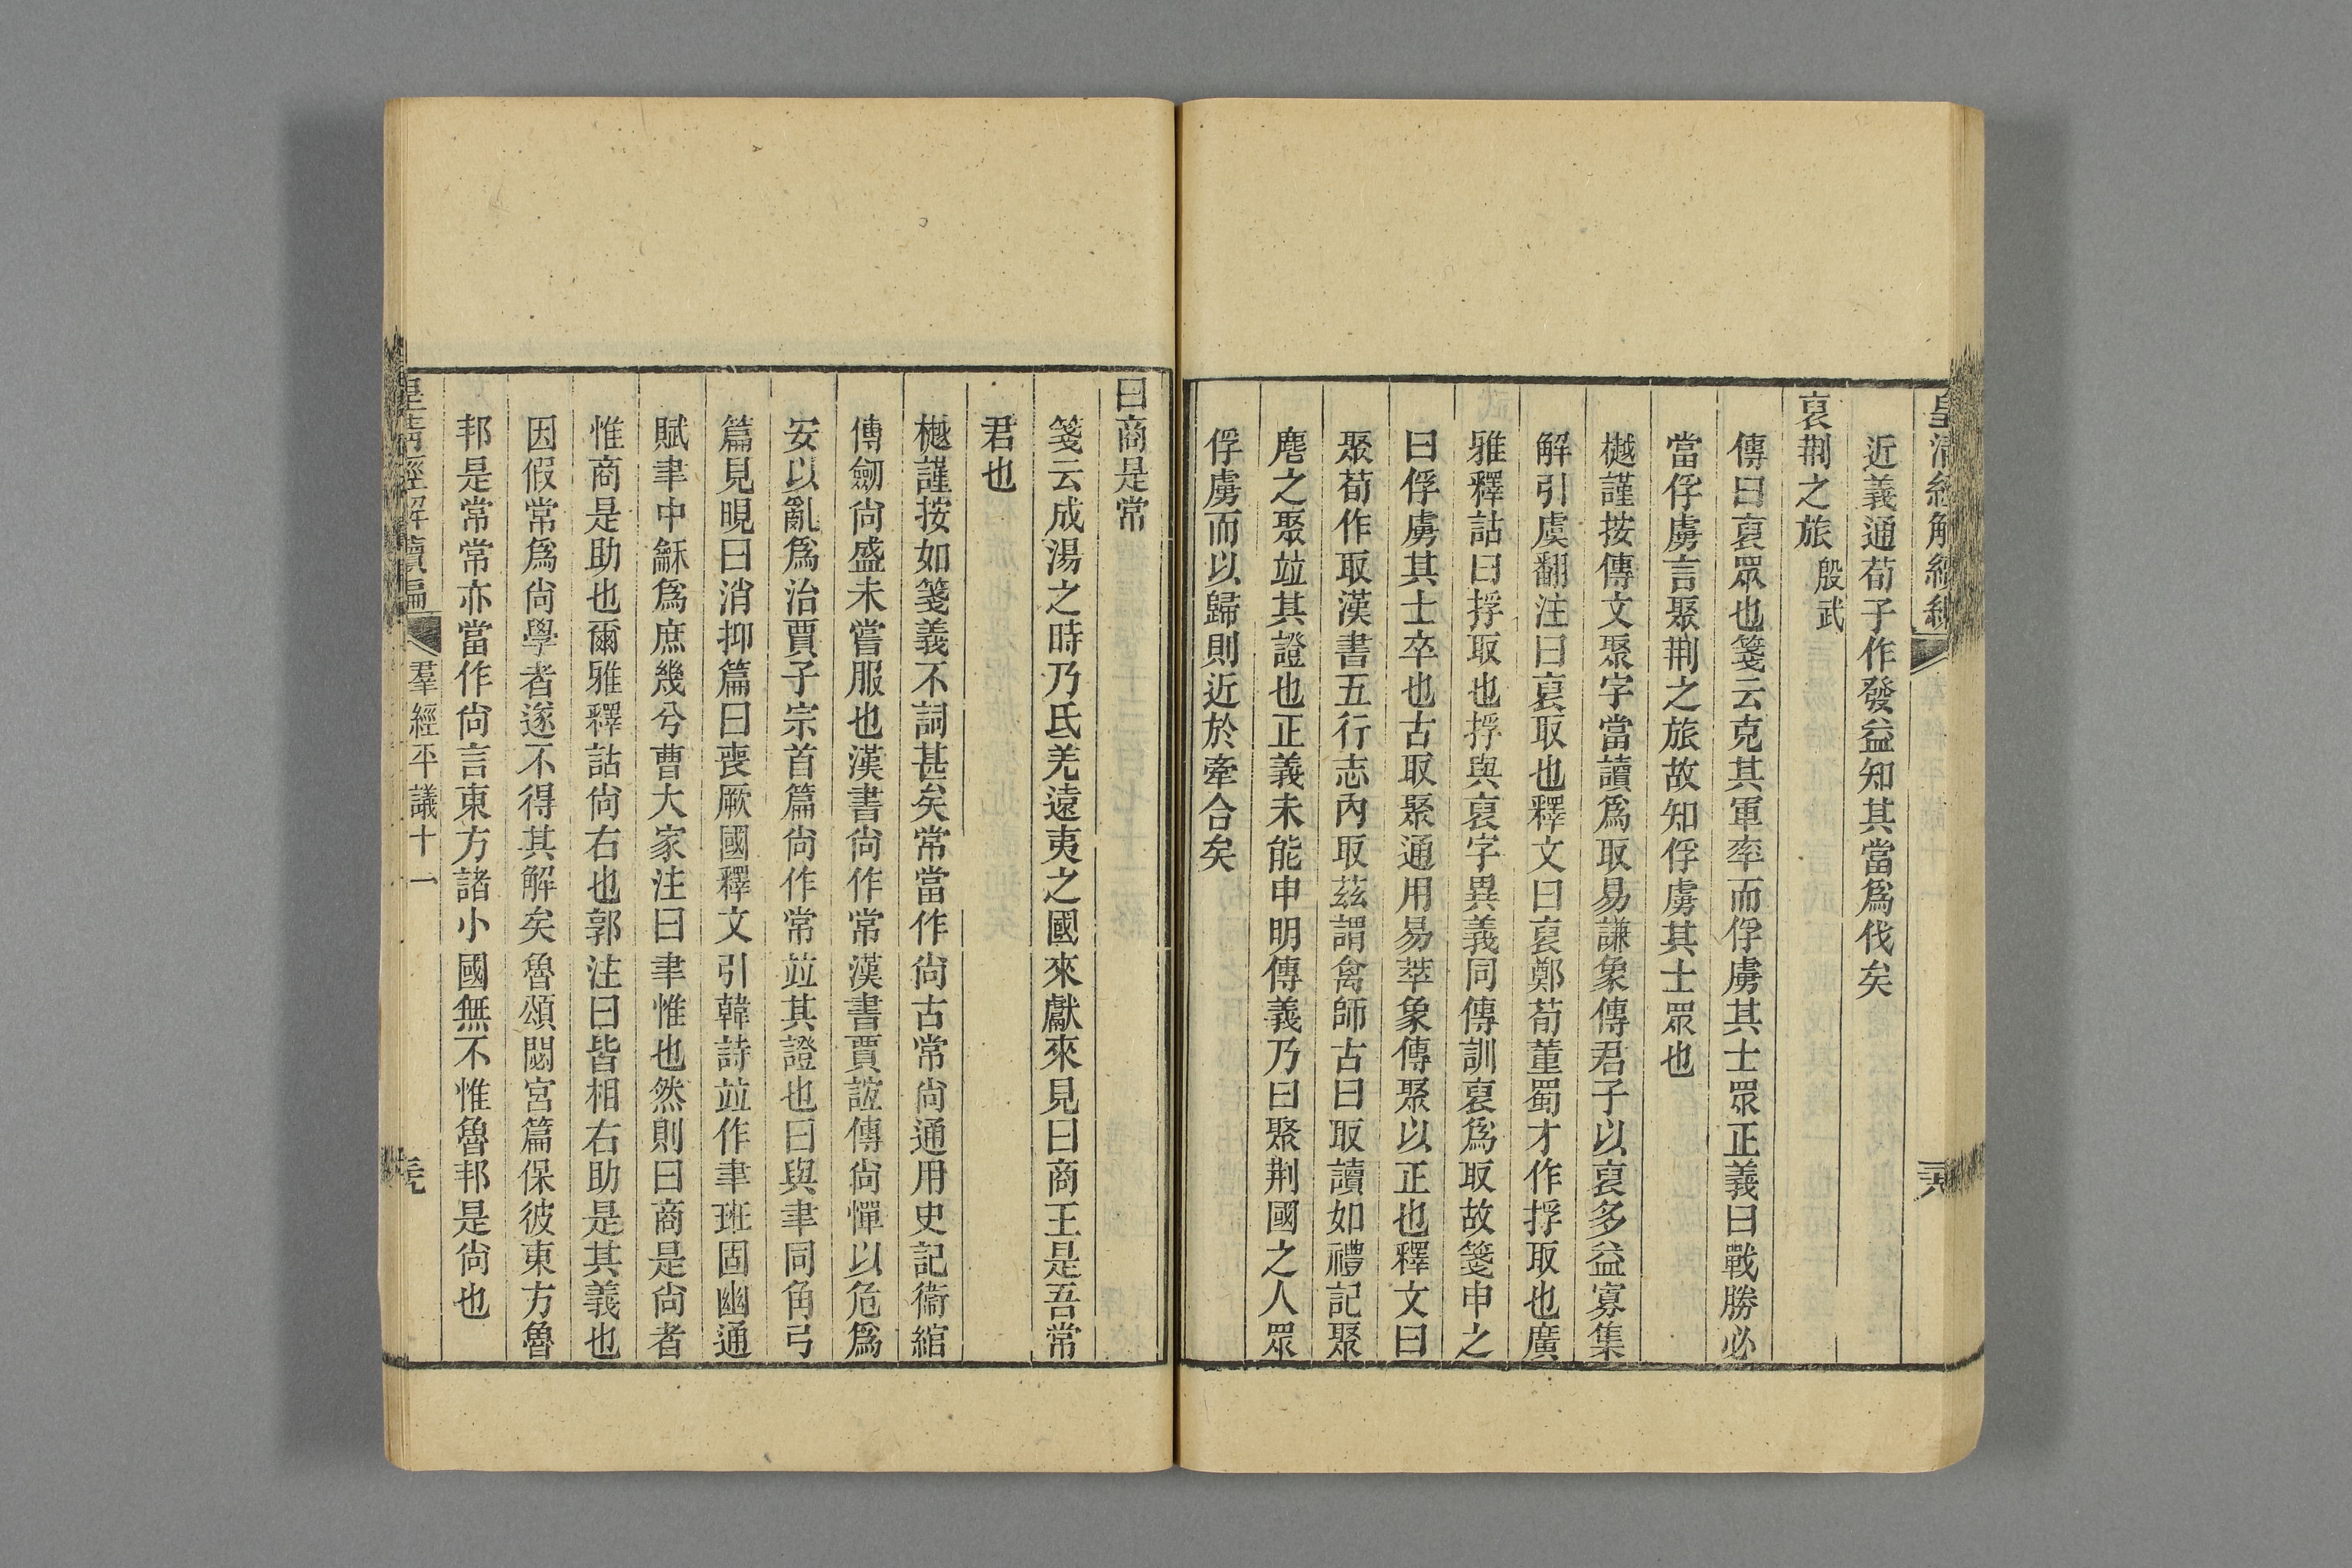 皇清經解續編
近義通荀子作發益知其當爲伐矣
裒荆之旅 殷武
傳曰裒眾也箋云克其軍率而俘虜其士眾正義曰戰勝必
當俘虜言聚荆之旅故知俘虜其士眾也
樾謹按傳文聚字當讀爲取易謙象傳君子以裒多益寡集
解引虞翻注曰裒取也釋文曰裒鄭荀董蜀才作捊取也廣
雅釋詁曰捊取也捊與裒字異義同傳訓裒爲取故箋申之
曰俘虜其士卒也古取聚通用易萃象傳聚以正也釋文曰
聚荀作取漢書五行志內取茲謂禽師古曰取讀如禮記聚
麀之聚竝其證也正義未能申明傳義乃曰聚荆國之人眾
俘虜而以歸則近於牽合矣
曰商是常
箋云成湯之時乃氐羌遠夷之國來獻來見曰商王是吾常
君也
樾謹按如箋義不詞甚矣常當作尙古常尙通用史記衞綰
傳劒尙盛未嘗服也漢書尙作常漢書賈誼傳尙憚以危爲
安以亂爲治賈子宗首篇尙作常竝其證也曰與聿同角弓
篇見晛曰消抑篇曰喪厥國釋文引韓詩竝作聿班固幽通
賦聿中龢爲庶幾兮曹大家注曰聿惟也然則曰商是尙者
惟商是助也爾雅釋詁尙右也郭注曰皆相右助是其義也
因假常爲尙學者遂不得其解矣魯頌閟宮篇保彼東方魯
邦是常常亦當作尙言東方諸小國無不惟魯邦是尙也
皇清經解續編 羣經平議十一